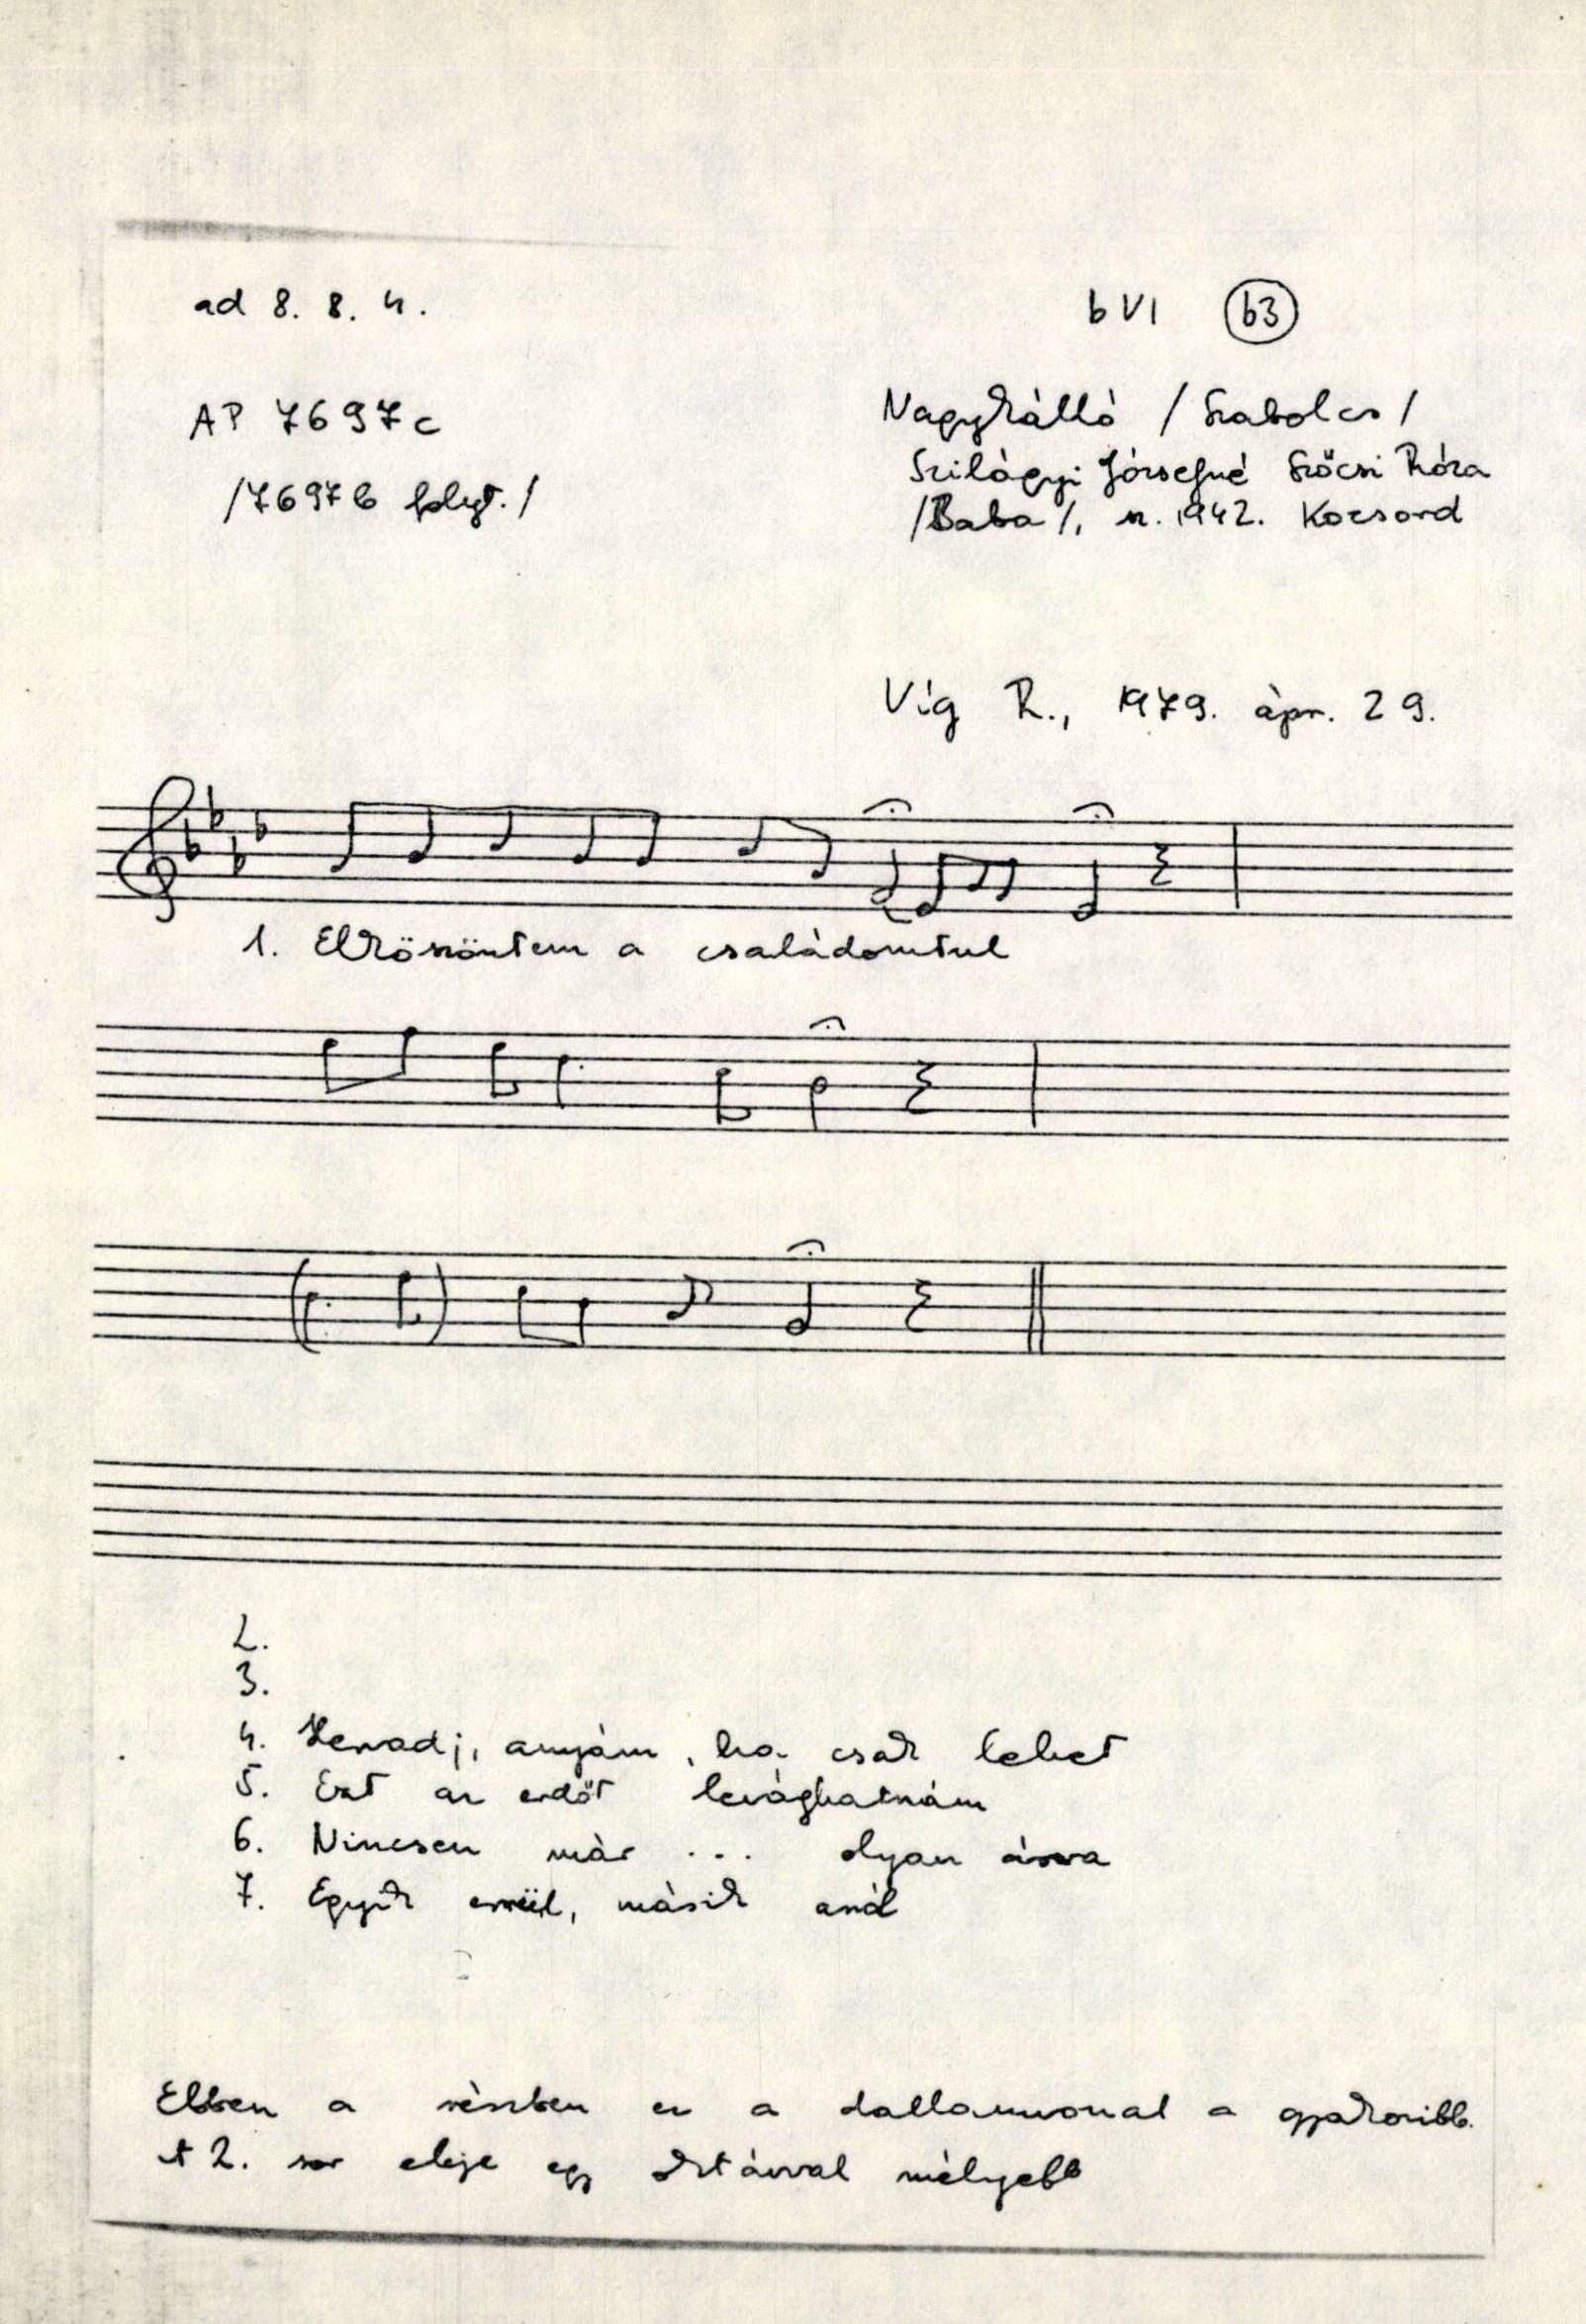 ad 8. 8. 4.
b VI (b3)
AP 7697c
/7697b folyt./
Nagykálló /Szabolcs/
Szilágyi Józsefné Szőcsi Róza
/Baba/, sz. 1942. Kocsord
Víg R., 1979. ápr. 29.
1. Elköszöntem a családomtul
2.
3.
4. Henadj, anyám, ha csak lehet
5. Ezt az erdőt levághatnám
6. Nincsen már ... olyan árva
7. Egyik errül, másik arról
Ebben a részben ez a dallamvonal a gyakoribb.
A 2. sor eleje egy oktávval mélyebb